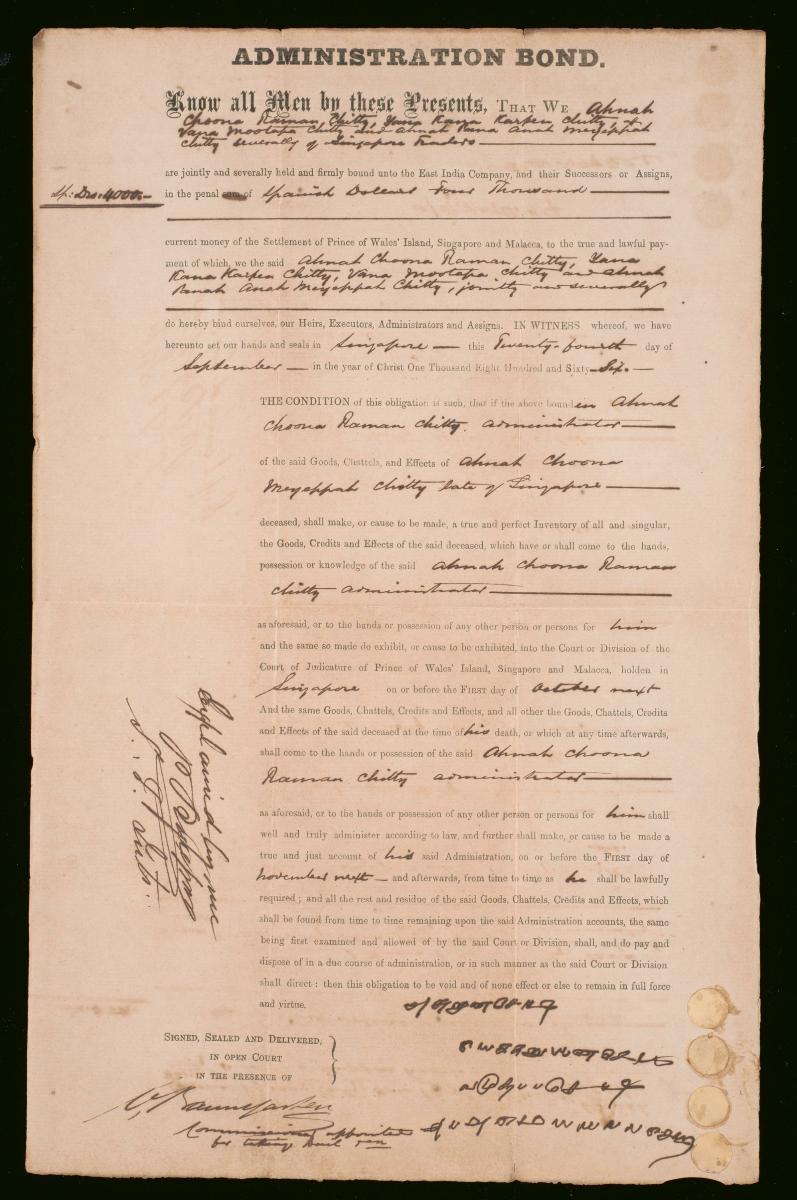 ADMINISTRATION BOND.
Know all Men by these Presents, THAT WE Ahnah
Choona Raman Chitty, Yana Kana Karpen Chitty, &
Vana Mootapa Chitty and Ahnah Pana Anah Meyeppah
Chitty severally of Singapore Traders
are jointly and severally held and firmly bound unto the East India Company, and their Successors or Assigns,
Sp: Drs: 4000.-
in the penal sum of Spanish Dollars Four Thousand
current money of the Settlement of Prince of Wales' Island, Singapore and Malacca, to the true and lawful pay-
ment of which, we the said Ahnah Choona Raman Chitty, Yana
Kana Karpen Chitty, Vana Mootapa Chitty and Ahnah
Panah Anah Meyeppah Chitty, jointly and severally
do hereby bind ourselves, our Heirs, Executors, Administrators and Assigns. IN WITNESS whereof, we have
hereunto set our hands and seals in Singapore — this Twenty-fourth day of
September — in the year of Christ One Thousand Eight Hundred and Sixty-Six.-
THE CONDITION of this obligation is such, that if the above bounden Ahnah
Choona Raman Chitty. administrator
of the said Goods, Chattels, and Effects of Ahnah Choona
Meyeppah Chitty late of Singapore
deceased, shall make, or cause to be made, a true and perfect Inventory of all and singular,
the Goods, Credits and Effects of the said deceased, which have or shall come to the hands,
possession or knowledge of the said Ahnah Choona Raman
Chitty administrator
as aforesaid, or to the hands or possession of any other person or persons for him
and the same so made do exhibit, or cause to be exhibited, into the Court or Division of the
Court of Judicature of Prince of Wales' Island, Singapore and Malacca, holden in
Singapore on or before the FIRST day of October next
And the same Goods, Chattels, Credits and Effects, and all other the Goods, Chattels, Credits
and Effects of the said deceased at the time of his death, or which at any time afterwards,
shall come to the hands or possession of the said Ahnah Choona
Raman Chitty administrator
as aforesaid, or to the hands or possession of any other person or persons for him shall
well and truly administer according to law, and further shall make, or cause to be made a
true and just account of his said Administration, on or before the FIRST day of
November next — and afterwards, from time to time as he shall be lawfully
required; and all the rest and residue of the said Goods, Chattels, Credits and Effects, which
shall be found from time to time remaining upon the said Administration accounts, the same
being first examined and allowed of by the said Court or Division, shall, and do pay and
dispose of in a due course of administration, or in such manner as the said Court or Division
shall direct: then this obligation to be void and of none effect or else to remain in full force
and virtue.
Explained by me
SIGNED, SEALED AND DELIVERED,
IN OPEN COURT
IN THE PRESENCE OF
Commissioner appointed
for taking bail